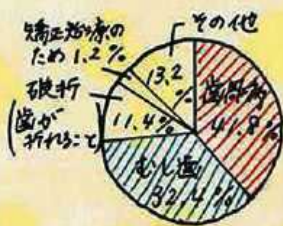 矯正治療の
ため 1.2%
その他
13.2
%
破折
(歯が
折れること)
11.4%
歯周病
41.8%
むし歯
32.4%